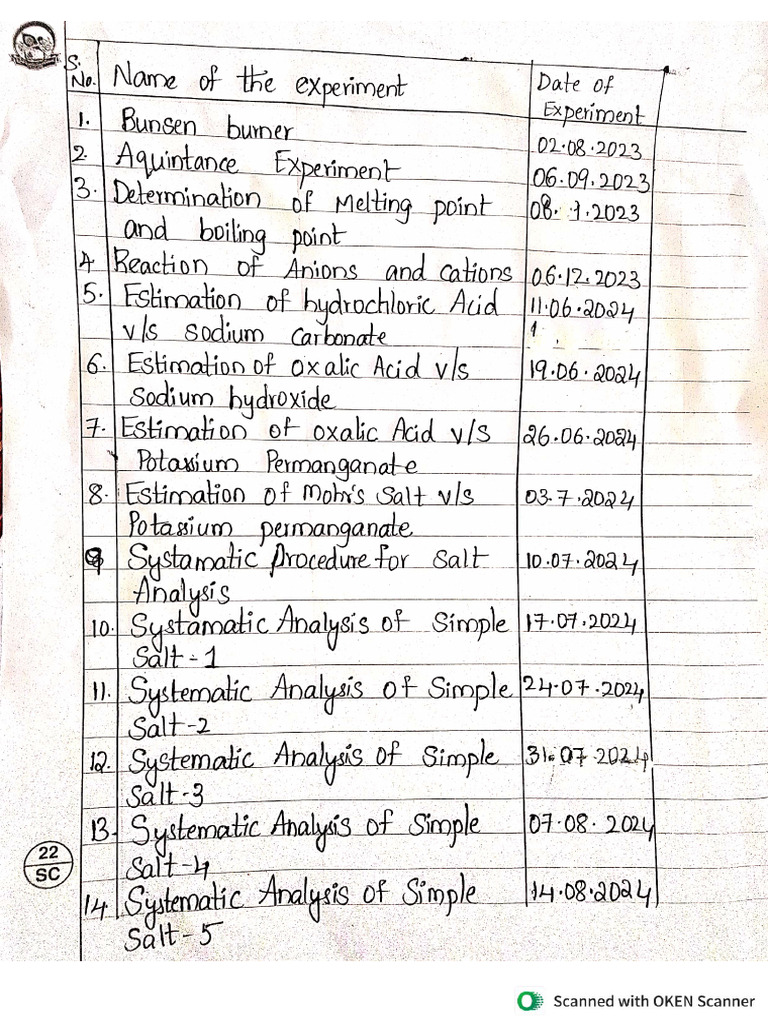 S.
No. Name of the experiment Date of
Experiment
1. Bunsen burner 02.08.2023
2. Aquintance Experiment 06.09.2023
3. Determination of Melting point 08. 1.2023
and boiling point
4 Reaction of Anions and cations 06.12.2023
5. Estimation of hydrochloric Acid 11.06.2024
v/s sodium carbonate
6. Estimation of oxalic Acid v/s 19.06.2024
Sodium hydroxide
7. Estimation of oxalic Acid v/s 26.06.2024
Potassium Permanganate
8. Estimation of Mohr's Salt v/s 03.7.2024
Potassium permanganate
9 Systamatic Procedure for Salt 10.07.2024
Analysis
10. Systamatic Analysis of Simple 17.07.2024
Salt-1
11. Systematic Analysis of Simple 24.07.2024
Salt-2
12. Systematic Analysis of Simple 31.07.2024
Salt-3
13. Systematic Analysis of Simple 07.08.2024
Salt-4
14. Systematic Analysis of Simple 14.08.2024
Salt-5
22
SC
Scanned with OKEN Scanner